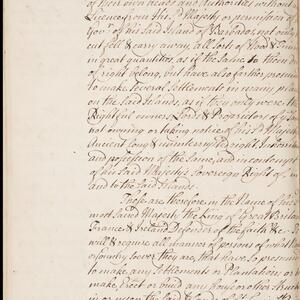 of their own heads and Authorities without
Licence from the Sd. Majesty or permission of
Govr. of his Said Island of Barbados, not only
cut fell & carry away, all Sorts of Wood & Timber
in great quantities, as if the Same to them did
of right belong, but have also further presumed
to make Several Settlements in many places
on the Said Islands, as if they only were the
Rightful owners, Lords & Proprietors of ye Same
not owning or taking notice of his Sd. Majestys
Ancient long & uninterrupted right, Interest
and possession of the Same, and in contempt
of his Said Majestys Sovereign Right of, in
and to the Said Islands.
These are therefore, in the Name of his
most Sacred Majesty the King of Great Britain
France & Ireland Defender of the faith &c. To
will & require all manner of persons of what
or Country Soever they are, that have So presumed
to make any Settlements or Plantations or to
make, Erect or build any house or other
in or upon the Said